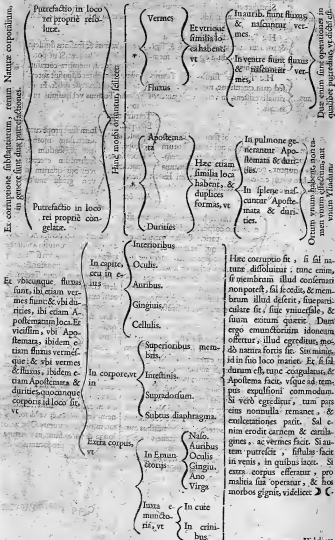 Putrefactio in loco
rei propriè reso-
lutæ.
Ex corruptione subsistantiarum, rerum Naturæ corporalium,
in genere sunt duæ putrefactiones.
Putrefactio in loco
rei propriè con-
gelatæ.
Hinc morbi oriuntur scilicet
Vermes
Fluxus
Et vtrique
similia lo-
ca habent:
vt
In aurib. sunt fluxus,
& nascuntur ver-
mes.
In ventre sunt fluxus
& nascuntur ver-
mes,
Duæ enim sunt operationes in
qualibet putredine, vt dictũ est.
Apostema-
ta
Durities
Hæc etiam
similia loca
habent, &
duplices
formas, vt
In pulmone ge-
nerantur Apo-
stemata & duri-
ties.
In splene nas-
cuntur Aposte-
mata & duri-
ties.
Ortum vnum habent, non ta-
men vnum essectum aut
vnum vlcudium.
Et vbicunque fluxus
sunt, ibi etiam ver-
mes sunt: & vbi du-
rities, ibi etiam A-
postematum loca. Et
vicissim, vbi Apo-
stemata, ibidem e-
tiam fluxus vermés-
que: & vbi vermes
& fluxus, ibidem e-
tiam Apostemata &
durities, quocunque
corporis id loco sit,
vt
In capite,
ceu in e-
ius
Interioribus
Oculis.
Auribus.
Gingiuis,
Cellulis.
In corpore, vt
in
Superioribus mem-
bris.
Intestinis.
Supradorsum.
Subtus diaphragma.
Extra corpus,
vt
In Emun-
ctorijs
Naso.
Auribus
Oculis
Gingiu.
Ano
Virga
Iuxta e-
muncto-
ria, vt
In cute
In crini-
bus.
Hæc corruptio fit, si sal na-
turæ dissoluitur: tunc enim,
si membrum illud conseruare
non potest, sal secedit, & mem-
brum illud deserit, siue parti-
culare sit, siue vniuersale, &
suum exitum quærit. Dum
ergo emunctorium idoneum
offertur, illud egreditur, mo-
dò natura fortis sit. Sin minus,
id in suo loco manet. Et, si sal
durum est, tunc coagulatur, &
Apostema facit, vsque ad tem-
pus expulsioni commodum.
Si verò egreditur, tum pars
eius nonnulla remanet, &
exulcerationes parit. Sal e-
nim erodit carnem & cartila-
gines, ac vermes facit. Si au-
tem putrescit, fistulas facit
in venis, in quibus iacet. Si
extra corpus efferatur, pro
malitia sua operatur, & hos
morbos gignit, videlicet ☽ ☾.